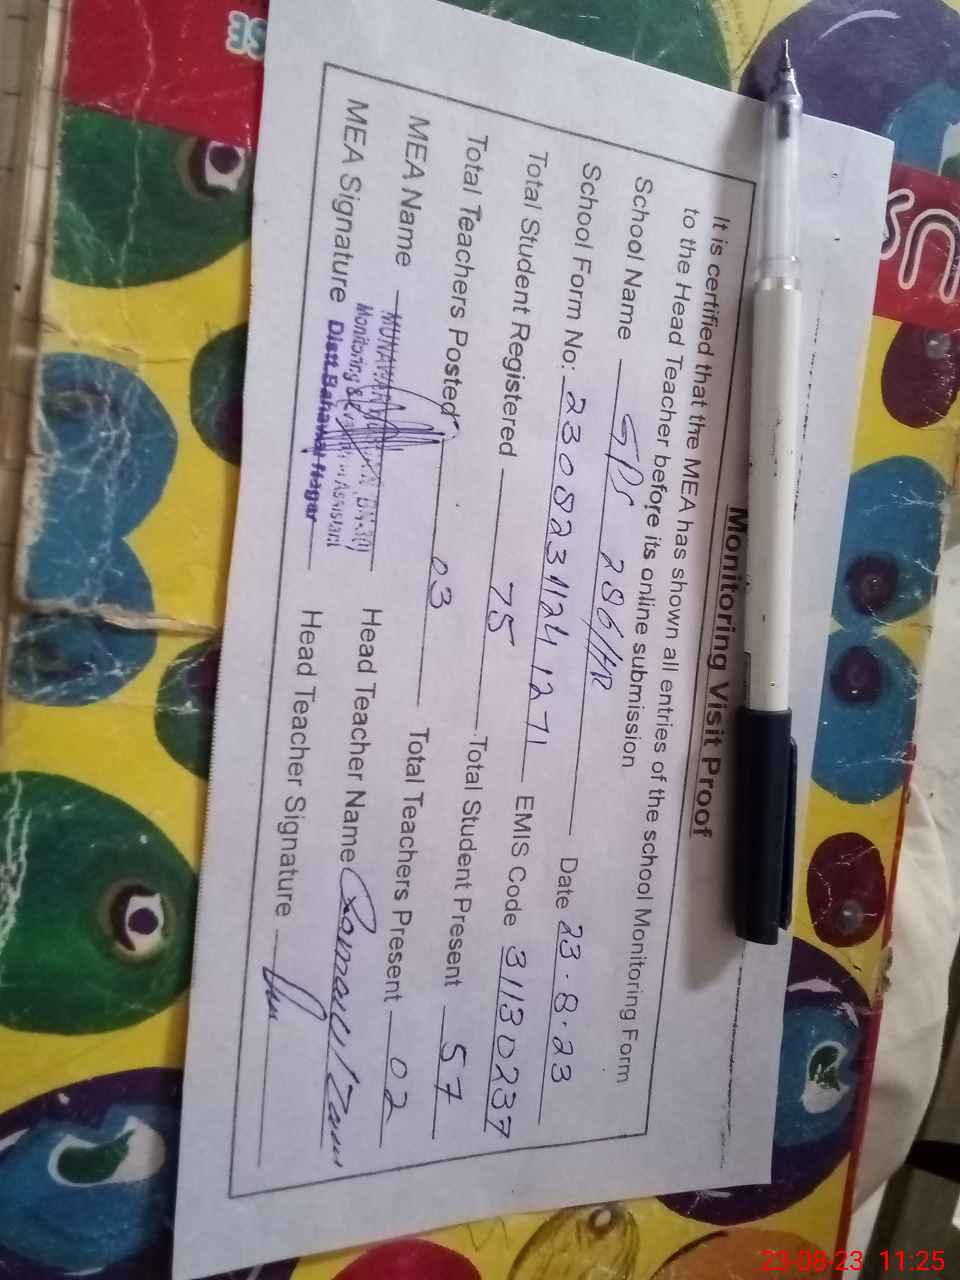 Monitoring Visit Proof
It is certified that the MEA has shown all entries of the school Monitoring Form
to the Head Teacher before its online submission
School Name GPS 286/HR Date 23.8.23
School Form No: 2308231124 1271 EMIS Code 31130237
Total Student Registered 75 Total Student Present 57
Total Teachers Posted 03 Total Teachers Present 02
MEA Name MUNAWAR Head Teacher Name
Monitoring & Assistant
MEA Signature Distt. Bahawal Nagar Head Teacher Signature
23-08-23 11:25